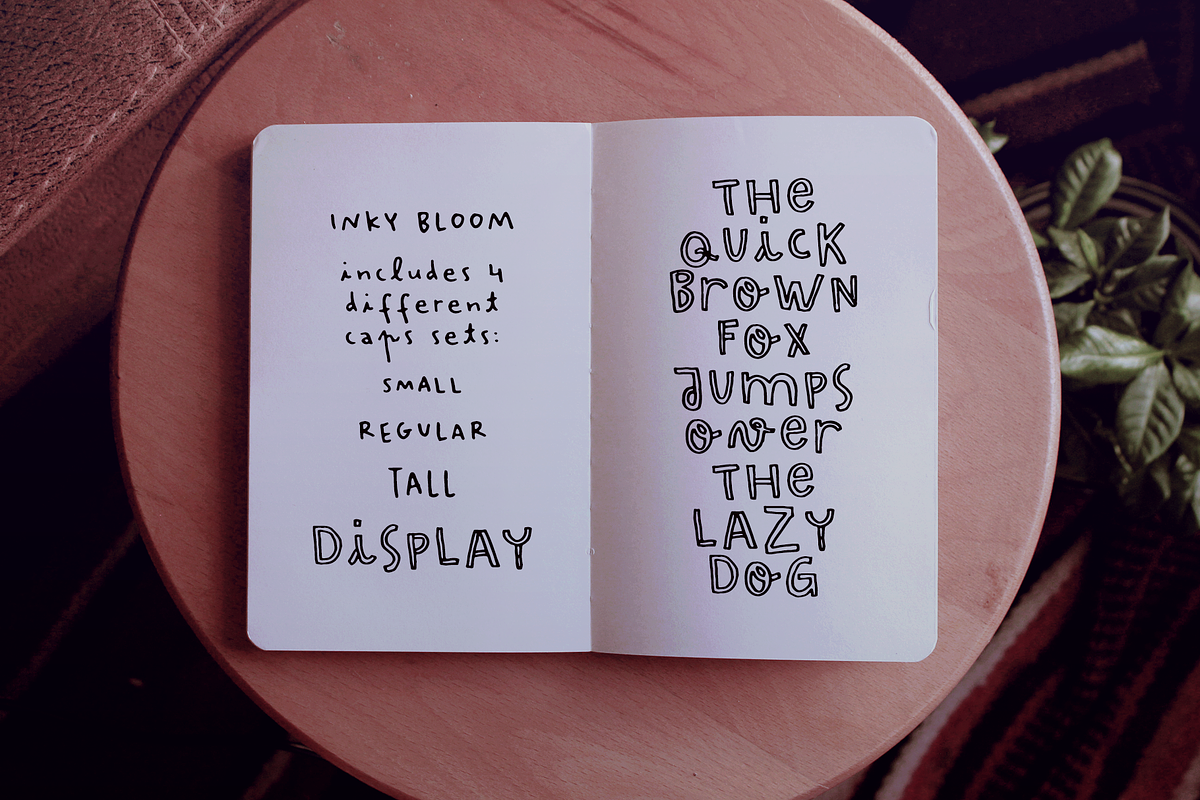 INKY BLOOM
includes 4
different
caps sets:
SMALL
REGULAR
TALL
DiSPLAY
THe
QUiCK
BroWN
FOX
JUmPS
over
THe
LAZY
DOG